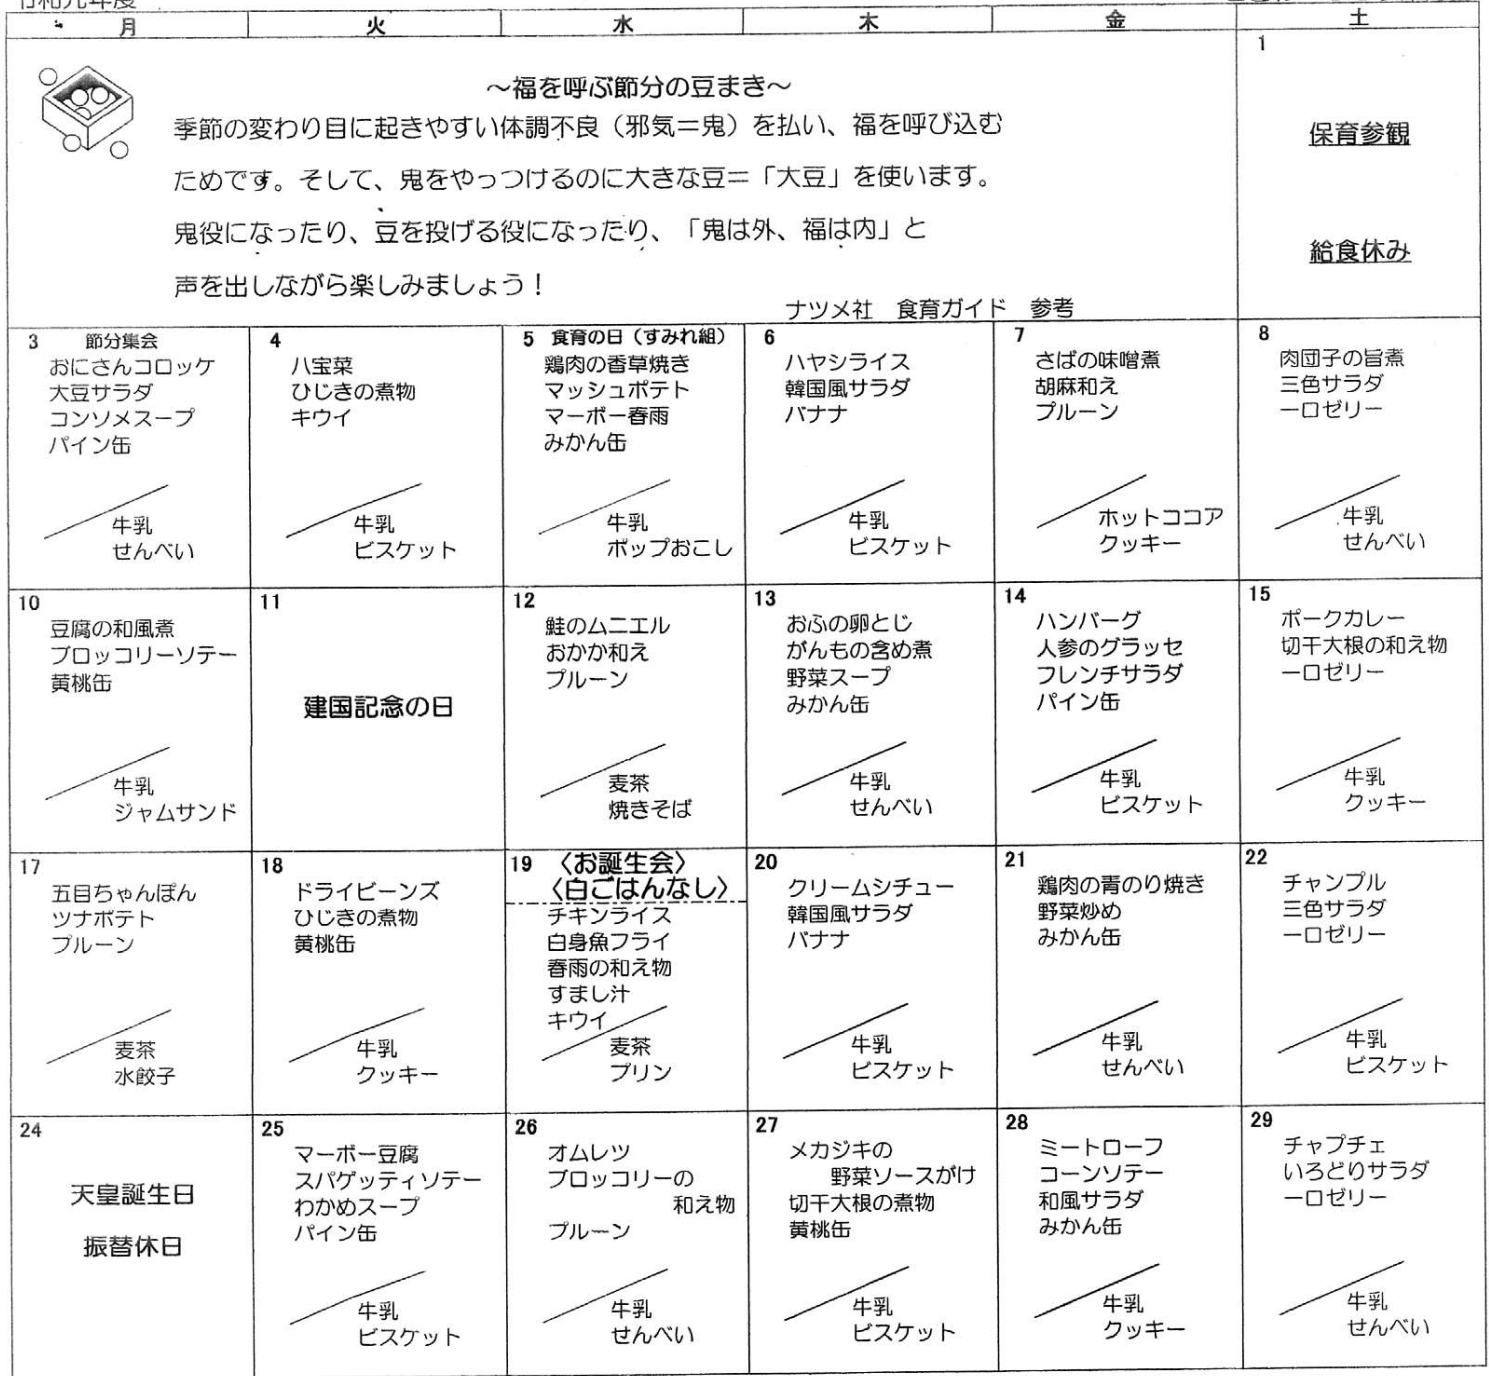 令和元年度
月 火 水 木 金 土
～福を呼ぶ節分の豆まき～
季節の変わり目に起きやすい体調不良（邪気＝鬼）を払い、福を呼び込む
ためです。そして、鬼をやっつけるのに大きな豆＝「大豆」を使います。
鬼役になったり、豆を投げる役になったり、「鬼は外、福は内」と
声を出しながら楽しみましょう！
ナツメ社　食育ガイド　参考
1
保育参観
給食休み
3 節分集会
おにさんコロッケ
大豆サラダ
コンソメスープ
パイン缶
牛乳
せんべい
4
八宝菜
ひじきの煮物
キウイ
牛乳
ビスケット
5 食育の日（すみれ組）
鶏肉の香草焼き
マッシュポテト
マーボー春雨
みかん缶
牛乳
ポップおこし
6
ハヤシライス
韓国風サラダ
バナナ
牛乳
ビスケット
7
さばの味噌煮
胡麻和え
プルーン
ホットココア
クッキー
8
肉団子の旨煮
三色サラダ
一口ゼリー
牛乳
せんべい
10
豆腐の和風煮
ブロッコリーソテー
黄桃缶
牛乳
ジャムサンド
11
建国記念の日
12
鮭のムニエル
おかか和え
プルーン
麦茶
焼きそば
13
おふの卵とじ
がんもの含め煮
野菜スープ
みかん缶
牛乳
せんべい
14
ハンバーグ
人参のグラッセ
フレンチサラダ
パイン缶
牛乳
ビスケット
15
ポークカレー
切干大根の和え物
一口ゼリー
牛乳
クッキー
17
五目ちゃんぽん
ツナポテト
プルーン
麦茶
水餃子
18
ドライビーンズ
ひじきの煮物
黄桃缶
牛乳
クッキー
19 〈お誕生会〉
〈白ごはんなし〉
チキンライス
白身魚フライ
春雨の和え物
すまし汁
キウイ
麦茶
プリン
20
クリームシチュー
韓国風サラダ
バナナ
牛乳
ビスケット
21
鶏肉の青のり焼き
野菜炒め
みかん缶
牛乳
せんべい
22
チャンプル
三色サラダ
一口ゼリー
牛乳
ビスケット
24
天皇誕生日
振替休日
25
マーボー豆腐
スパゲッティソテー
わかめスープ
パイン缶
牛乳
ビスケット
26
オムレツ
ブロッコリーの
和え物
プルーン
牛乳
せんべい
27
メカジキの
野菜ソースがけ
切干大根の煮物
黄桃缶
牛乳
ビスケット
28
ミートローフ
コーンソテー
和風サラダ
みかん缶
牛乳
クッキー
29
チャプチェ
いろどりサラダ
一口ゼリー
牛乳
せんべい